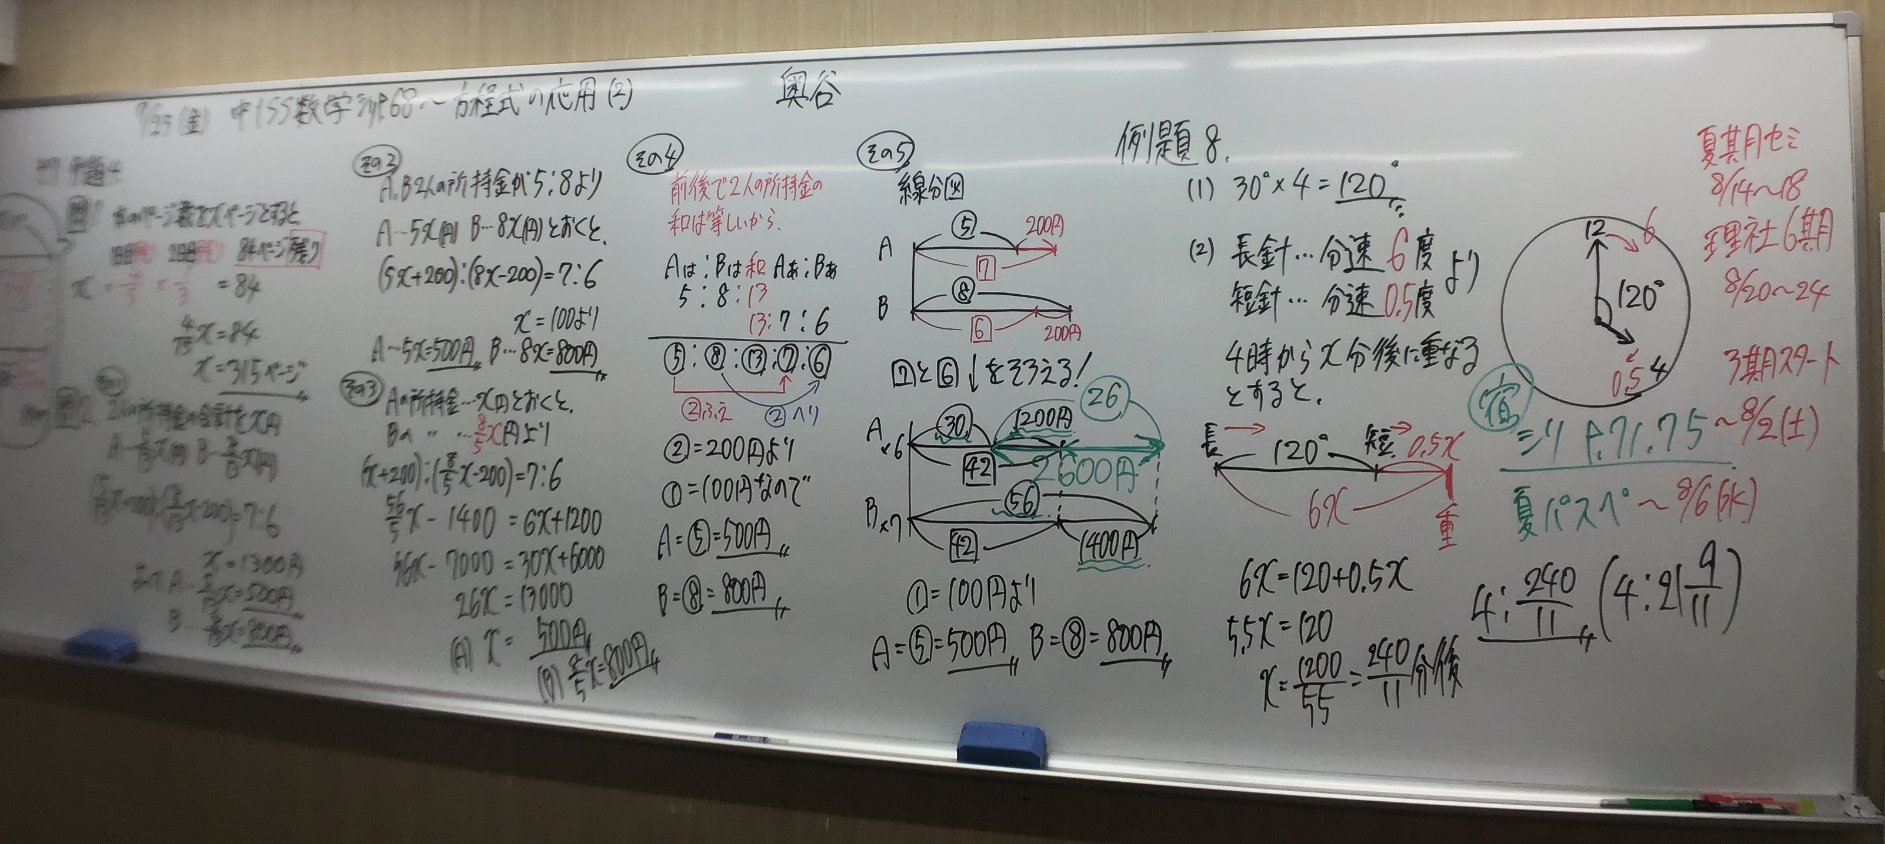 7/25(金) 中1SS数学 P.68〜 方程式の応用(2) 奥谷
例題4
問1 本のページ数をxページとすると、
84ページ残り
= 84
4/15x=84
x=315ページ
問2
2人の所持金の合計をx円
7:6
x=1300円
A 5/13x=500円
B… 8/13x=800円
その2
A,B2人の所持金が5:8より
A…5x(円) B…8x(円)とおくと、
(5x+200):(8x-200)=7:6
x=100より
A…5x=500円 B…8x=800円
その3 Aの所持金…x円とおくと、
Bの 〃 …8/5x円より
(x+200):(8/5x-200)=7:6
56/5x-1400=6x+1200
56x-7000=30x+6000
26x=13000
(A) x=500円
(B) 8/5x=800円
その4
前後で2人の所持金の
和は等しいから、
Aは:Bは:和:Aあ:Bあ
5:8:13
13:7:6
⑤:⑧:⑬:⑦:⑥
②ふえ ②へり
②=200円より
①=100円なので
A=⑤=500円
B=⑧=800円
その5
線分図
⑤ 200円
A
7
⑧
B
6 200円
7と6をそろえる!
26
A ×6 30 1200円
42 2600円
B ×7 56
42 1400円
①=100円より
A=⑤=500円 B=⑧=800円
例題8.
(1) 30°×4=120°
(2) 長針…分速6度より
短針…分速0.5度
4時からx分後に重なる
とすると、
長→ 120° 短→ 0.5x
6x 重
6x=120+0.5x
5.5x=120
x=1200/55=240/11分後
4:240/11 (4:21 9/11)
12 6
120°
0.5 4
夏期月セミ
8/14〜18
理社6期
8/20〜24
3期スタート
宿
シリP.71.75〜8/2(土)
夏パスペ〜8/6(水)